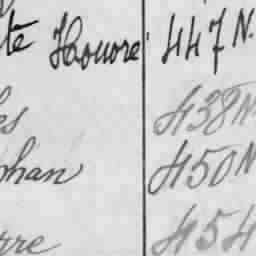 te Honore 447 N.
es 438 N
phan 450 N
pre 454